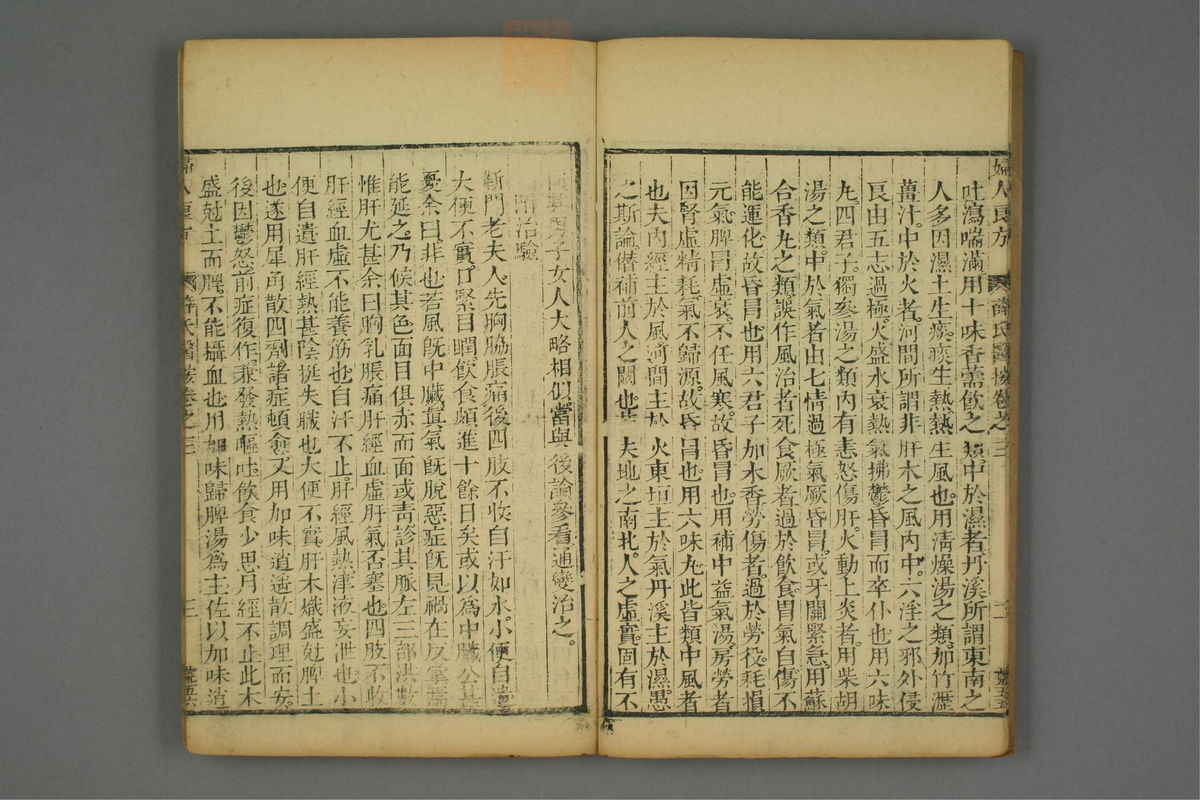 婦人良方 薛氏醫按卷之三 二
吐瀉喘滿用十味香薷飲之類中於濕者丹溪所謂東南之
人多因濕土生痰痰生熱熱生風也用清燥湯之類加竹瀝
薑汁中於火者河間所謂非肝木之風內中六淫之邪外侵
良由五志過極火盛水衰熱氣拂鬱昏冒而卒仆也用六味
丸四君子獨參湯之類內有恚怒傷肝火動上炎者用柴胡
湯之類中於氣者由七情過極氣厥昏冒或牙關緊急用蘇
合香丸之類誤作風治者死食厥者過於飲食胃氣自傷不
能運化故昏冒也用六君子加木香勞傷者過於勞役耗損
元氣脾胃虛衰不任風寒故昏冒也用補中益氣湯房勞者
因腎虛精耗氣不歸源故昏冒也用六味丸此皆類中風者
也夫內經主於風河間主於火東垣主於氣丹溪主於濕愚
之斯論僭補前人之闕也若夫地之南北人之虛實固有不
同其男子女人大略相似當與後論參看通變治之
附治驗
靳門老夫人先胸脇脹痛後四肢不收自汗如水小便自遺
大便不實口緊目瞤飲食頗進十餘日矣或以為中臟公甚
憂余曰非也若風既中臟真氣既脫惡症既見禍在反掌焉
能延之乃候其色面目俱赤而面或青診其脈左三部洪數
惟肝尤甚余曰胸乳脹痛肝經血虛肝氣否塞也四肢不收
肝經血虛不能養筋也自汗不止肝經風熱津液妄泄也小
便自遺肝經熱甚陰挺失職也大便不實肝木熾盛尅脾土
也遂用犀角散四劑諸症頓愈又用加味逍遙散調理而安
後因鬱怒前症復作兼發熱嘔吐飲食少思月經不止此木
盛尅土而脾不能攝血也用加味歸脾湯為主佐以加味逍
婦人良方 薛氏醫按卷之三 三